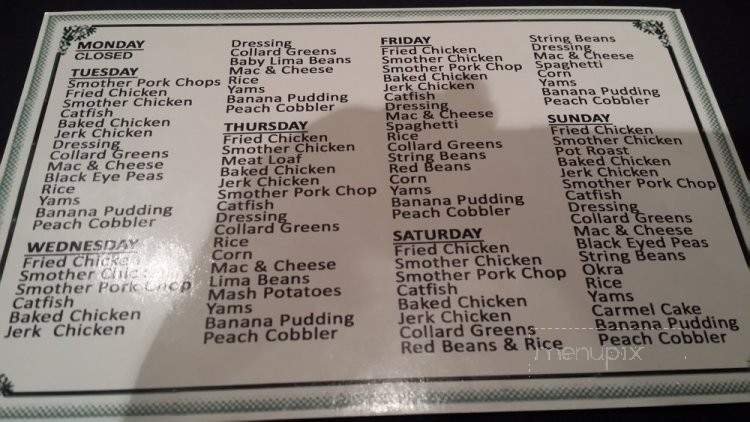 MONDAY
CLOSED
TUESDAY
Smother Pork Chops
Fried Chicken
Smother Chicken
Catfish
Baked Chicken
Jerk Chicken
Dressing
Collard Greens
Mac & Cheese
Black Eye Peas
Rice
Yams
Banana Pudding
Peach Cobbler
WEDNESDAY
Fried Chicken
Smother Chicken
Smother Pork Chop
Catfish
Baked Chicken
Jerk Chicken
Dressing
Collard Greens
Baby Lima Beans
Mac & Cheese
Rice
Yams
Banana Pudding
Peach Cobbler
THURSDAY
Fried Chicken
Smother Chicken
Meat Loaf
Baked Chicken
Jerk Chicken
Smother Pork Chop
Catfish
Dressing
Collard Greens
Rice
Corn
Mac & Cheese
Lima Beans
Mash Potatoes
Yams
Banana Pudding
Peach Cobbler
FRIDAY
Fried Chicken
Smother Chicken
Smother Pork Chop
Baked Chicken
Jerk Chicken
Catfish
Dressing
Mac & Cheese
Spaghetti
Rice
Collard Greens
String Beans
Red Beans
Corn
Yams
Banana Pudding
Peach Cobbler
SATURDAY
Fried Chicken
Smother Chicken
Smother Pork Chop
Catfish
Baked Chicken
Jerk Chicken
Collard Greens
Red Beans & Rice
String Beans
Dressing
Mac & Cheese
Spaghetti
Corn
Yams
Banana Pudding
Peach Cobbler
SUNDAY
Fried Chicken
Smother Chicken
Pot Roast
Baked Chicken
Jerk Chicken
Smother Pork Chop
Catfish
Dressing
Collard Greens
Mac & Cheese
Black Eyed Peas
String Beans
Okra
Rice
Yams
Carmel Cake
Banana Pudding
Peach Cobbler
menupix